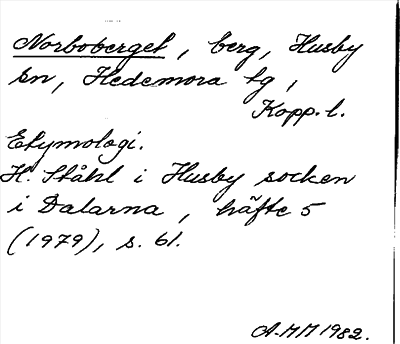 Norboberget, berg, Husby
sn, Hedemora tg,
Kopp. l.
Etymologi.
H. Ståhl i Husby socken
i Dalarna, häfte 5
(1979), s. 61.
A-MM 1982.